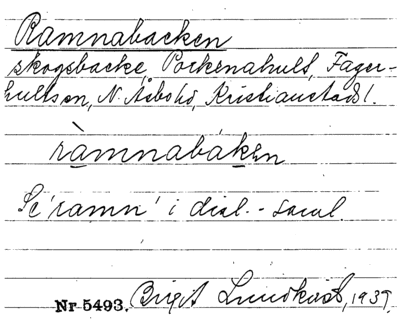 Ramnabacken
skogsbacke, Pockenahult, Fager-
hults sn, N. Åsbo hd, Kristianstads l.
ràmnabáken
Se 'ramn' i dial.-saml.
Nr 5493. Birgit Lundkvist, 1937.